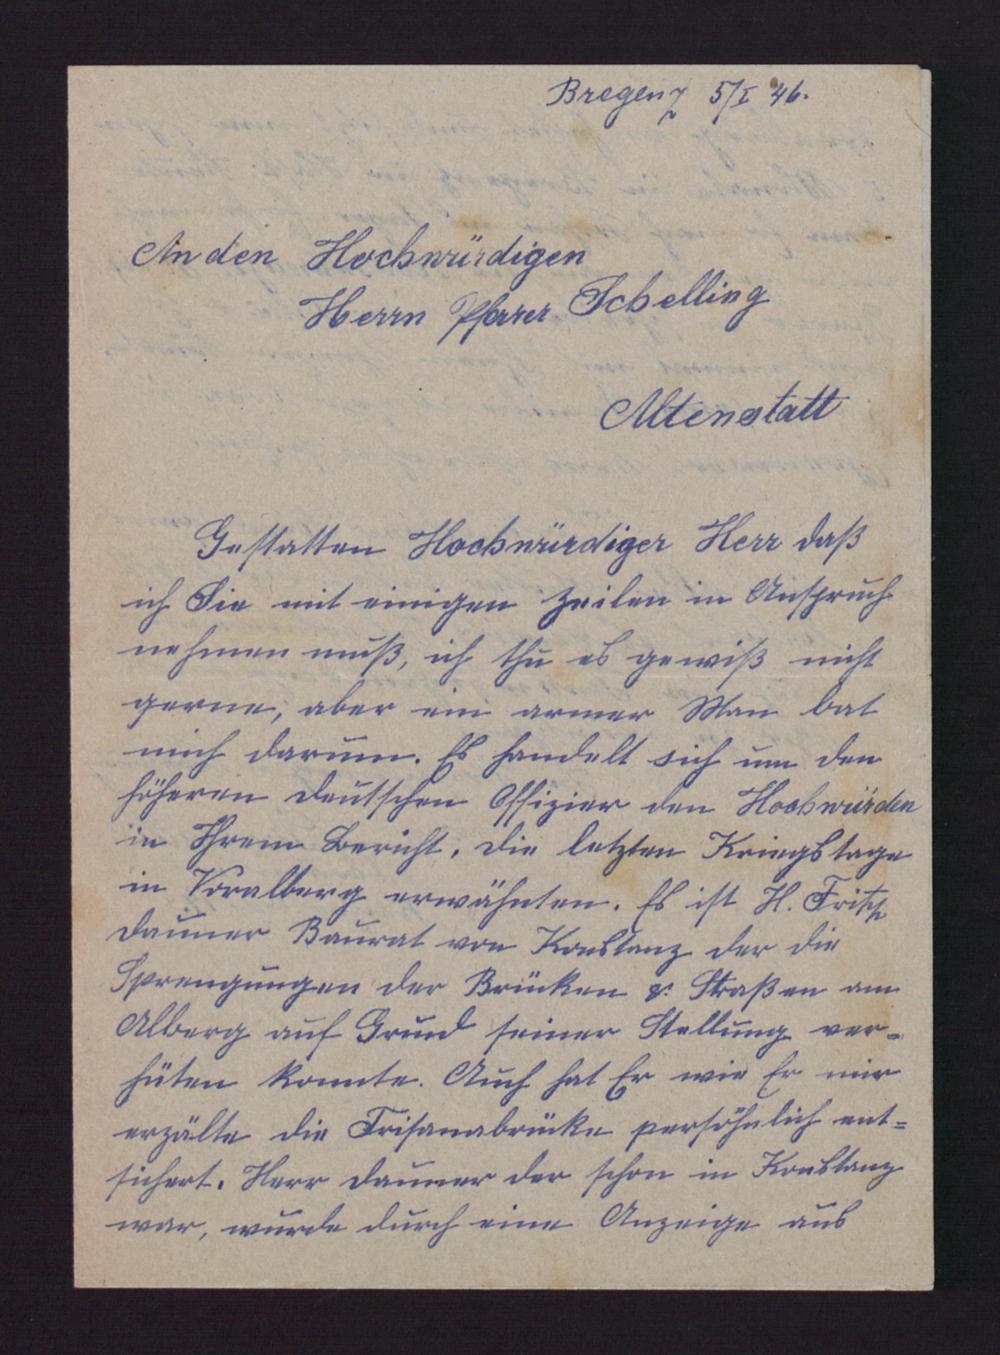 Bregenz 5/I 46.
An den Hochwürdigen
Herrn Pfarrer Schelling
Altenstatt
Gestatten Hochwürdiger Herr daß
ich Sie mit einigen Zeilen in Anspruch
nehmen muß, ich thu es gewiß nicht
gerne, aber ein armer Man bat
mich darum. Es handelt sich um den
höheren deutschen Offizier den Hochwürden
in Ihrem Bericht, die letzten Kriegstage
in Voralberg erwähnten. Es ist H. Fritz
Dauner Baurat von Konstanz der die
Sprengungen der Brücken & Straßen am
Alberg auf Grund seiner Stellung ver=
hüten konnte. Auch hat Er wie Er mir
erzälte die Trisanabrücke persöhnlich ent=
sichert. Herr Dauner der schon in Konstanz
war, wurde durch eine Anzeige aus